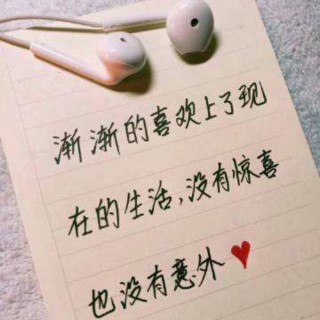 渐渐的喜欢上了现
在的生活,没有惊喜
也没有意外